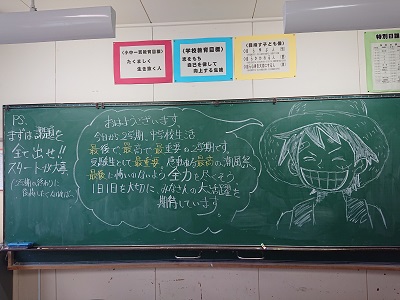 〈小中一貫教育目標〉
たくましく
生き抜く人
〈学校教育目標〉
志をもち
自己を律して
向上する生徒
〈目指す子ども像〉
特別日課
P.S.
まずは課題を
全て出せ!!
スタートが大事
おはようございます。
今日から2学期、中学校生活
最後で、最高で、最重要の2学期です。
受験生として最重要、感動的な最高の潮風祭。
最後に悔いのないよう全力を尽くそう
1日1日を大切に、みなさんの大活躍を
期待しています。